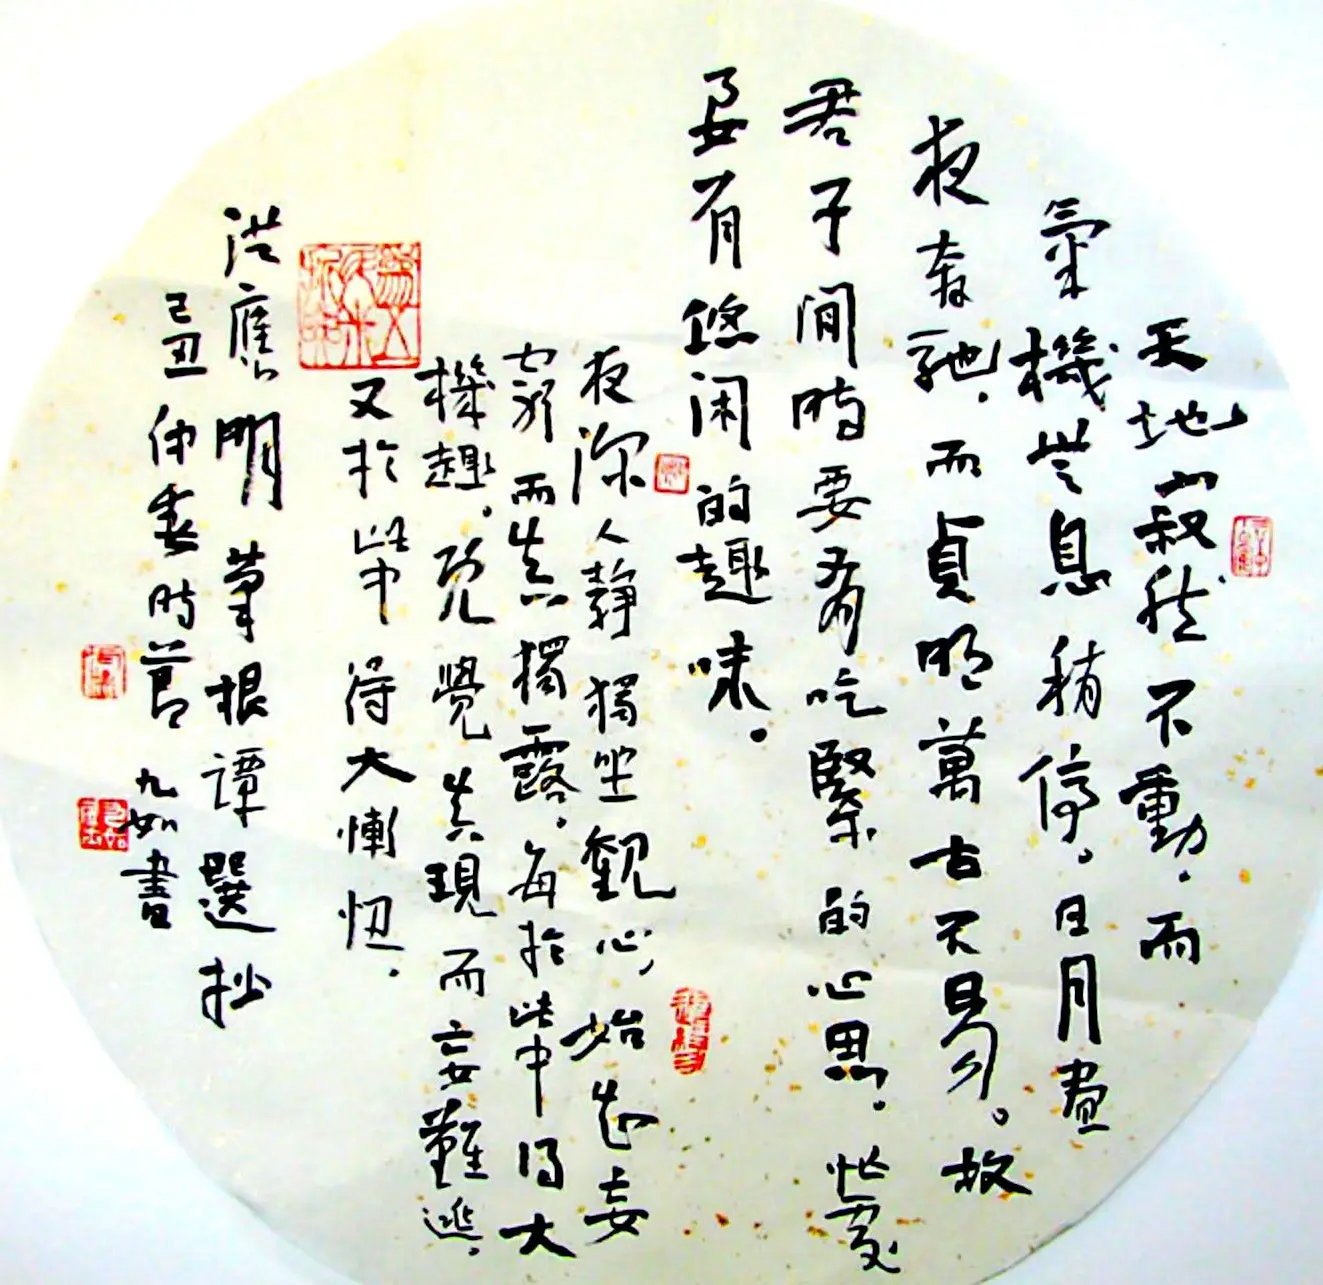 天地寂然不動，而
氣機無息稍停。日月晝
夜奔馳，而貞明萬古不易。故
君子閒時要有吃緊的心思，忙處
要有悠闲的趣味。
夜深人静獨坐觀心，始知妄
窮而真獨露，每於此中得大
機趣。既覺真現而妄難逃，
又於此中得大慚忸。
洪應明菜根譚選抄
己丑仲春時節九如書